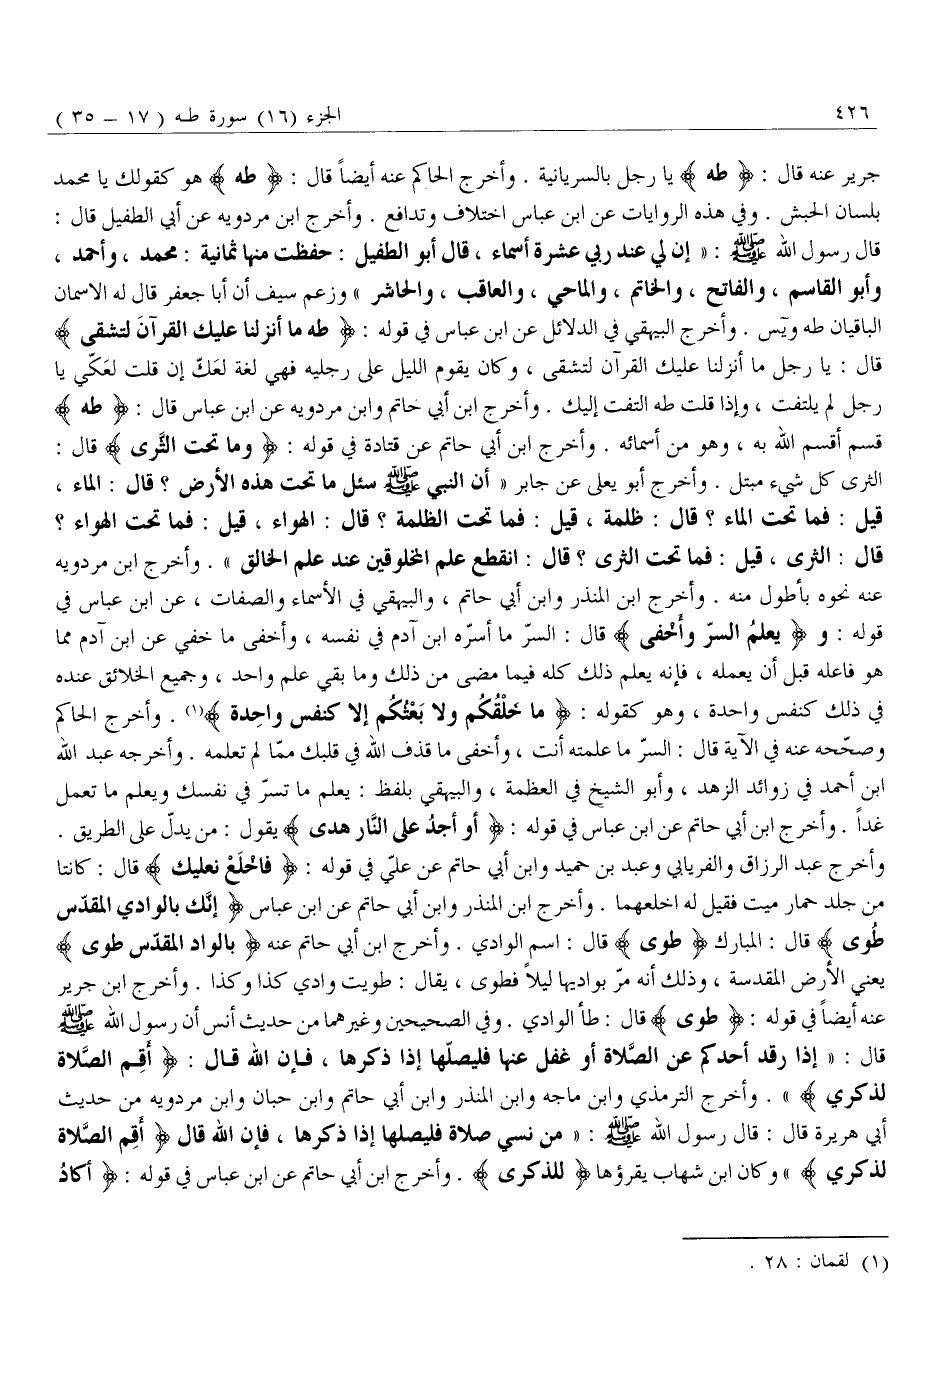 ٤٢٦ الجزء (١٦) سورة طـه ( ١٧ – ٣٥ )
جرير عنه قال : ﴿ طه ﴾ يا رجل بالسريانية . وأخرج الحاكم عنه أيضاً قال : ﴿ طه ﴾ هو كقولك يا محمد
بلسان الحبش . وفي هذه الروايات عن ابن عباس اختلاف وتدافع . وأخرج ابن مردويه عن أبي الطفيل قال :
قال رسول الله ﷺ : « إن لي عند ربي عشرة أسماء ، قال أبو الطفيل : حفظت منها ثمانية : محمد ، وأحمد ،
وأبو القاسم ، والفاتح ، والخاتم ، والماحي ، والعاقب ، والحاشر » وزعم سيف أن أبا جعفر قال له الاسمان
الباقيان طه ويٓس . وأخرج البيهقي في الدلائل عن ابن عباس في قوله : ﴿ طه ما أنزلنا عليك القرآنَ لتشقى ﴾
قال : يا رجل ما أنزلنا عليك القرآن لتشقى ، وكان يقوم الليل على رجليه فهي لغة لعَكّ إن قلت لعَكّي يا
رجل لم يلتفت ، وإذا قلت طه التفت إليك . وأخرج ابن أبي حاتم وابن مردويه عن ابن عباس قال : ﴿ طه ﴾
قسم أقسم الله به ، وهو من أسمائه . وأخرج ابن أبي حاتم عن قتادة في قوله : ﴿ وما تحت الثَّرى ﴾ قال :
الثرى كل شيء مبتل . وأخرج أبو يعلى عن جابر « أن النبي ﷺ سئل ما تحت هذه الأرض ؟ قال : الماء ،
قيل : فما تحت الماء ؟ قال : ظلمة ، قيل : فما تحت الظلمة ؟ قال : الهواء ، قيل : فما تحت الهواء ؟
قال : الثرى ، قيل : فما تحت الثرى ؟ قال : انقطع علم المخلوقين عند علم الخالق » . وأخرج ابن مردويه
عنه نحوه بأطول منه . وأخرج ابن المنذر وابن أبي حاتم ، والبيهقي في الأسماء والصفات ، عن ابن عباس في
قوله : و ﴿ يعلمُ السرّ وأَخْفى ﴾ قال : السرّ ما أسرّه ابن آدم في نفسه ، وأخفى ما خفي عن ابن آدم مما
هو فاعله قبل أن يعمله ، فإنه يعلم ذلك كله فيما مضى من ذلك وما بقي علم واحد ، وجميع الخلائق عنده
في ذلك كنفس واحدة ، وهو كقوله : ﴿ ما خَلْقُكُم ولا بَعْثُكُم إلا كنفس واحِدة ﴾(١) . وأخرج الحاكم
وصحّحه عنه في الآية قال : السرّ ما علمته أنت ، وأخفى ما قذف الله في قلبك ممّا لم تعلمه . وأخرجه عبد الله
ابن أحمد في زوائد الزهد ، وأبو الشيخ في العظمة ، والبيهقي بلفظ : يعلم ما تسرّ في نفسك ويعلم ما تعمل
غداً . وأخرج ابن أبي حاتم عن ابن عباس في قوله : ﴿ أو أجدُ على النَّار هدى ﴾ يقول : من يدلّ على الطريق .
وأخرج عبد الرزاق والفريابي وعبد بن حميد وابن أبي حاتم عن عليّ في قوله : ﴿ فاخْلَعْ نعليك ﴾ قال : كانتا
من جلد حمار ميت فقيل له اخلعهما . وأخرج ابن المنذر وابن أبي حاتم عن ابن عباس ﴿ إنَّك بالوادي المقدّس
طُوى ﴾ قال : المبارك ﴿ طوى ﴾ قال : اسم الوادي . وأخرج ابن أبي حاتم عنه ﴿ بالواد المقدّس طوى ﴾
يعني الأرض المقدسة ، وذلك أنه مرّ بواديها ليلاً فطوى ، يقال : طويت وادي كذا وكذا . وأخرج ابن جرير
عنه أيضاً في قوله : ﴿ طوى ﴾ قال : طأ الوادي . وفي الصحيحين وغيرهما من حديث أنس أن رسول الله ﷺ
قال : « إذا رقد أحدكم عن الصَّلاة أو غفل عنها فليصلّها إذا ذكرها ، فـإن الله قـال : ﴿ أَقِـم الصَّلاة
لذكري ﴾ » . وأخرج الترمذي وابن ماجه وابن المنذر وابن أبي حاتم وابن حبان وابن مردويه من حديث
أبي هريرة قال : قال رسول الله ﷺ : « من نسي صلاة فليصلها إذا ذكرها ، فإن الله قال ﴿ أَقِم الصَّلاة
لذكري ﴾ » وكان ابن شهاب يقرؤها ﴿ للذكرى ﴾ . وأخرج ابن أبي حاتم عن ابن عباس في قوله : ﴿ أكادُ
(١) لقمان : ٢٨ .